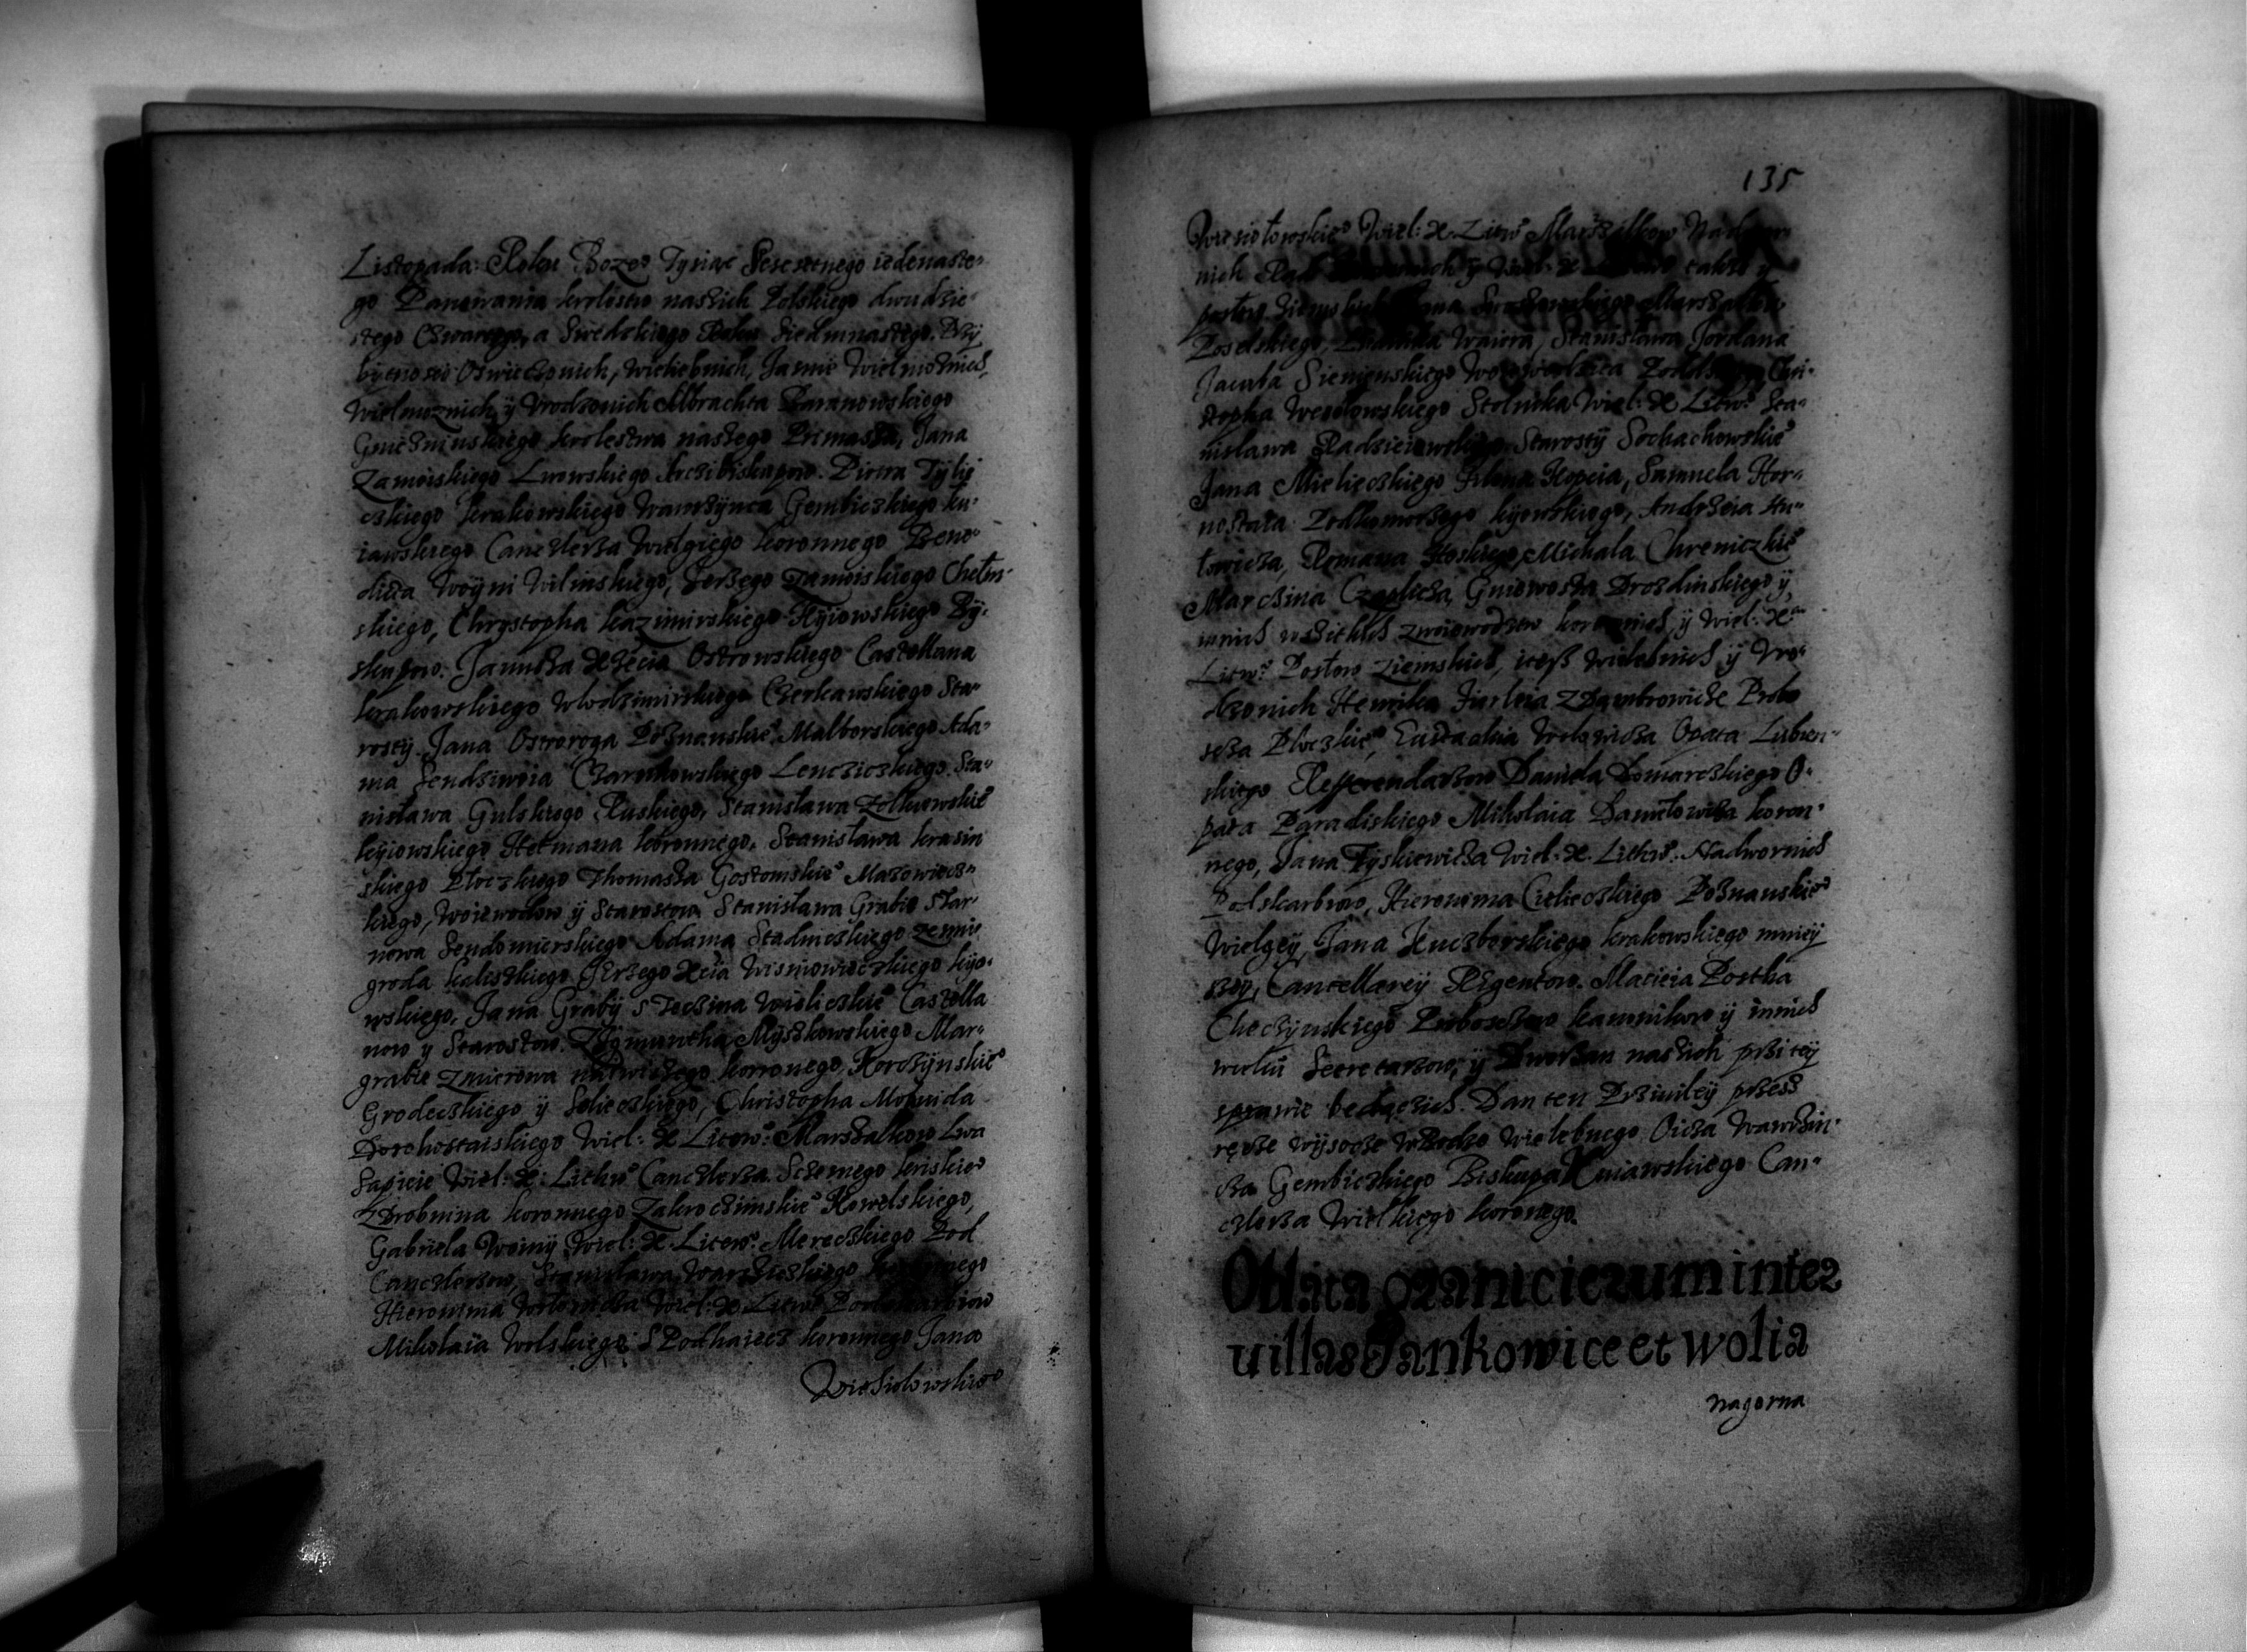 Listopada: Roku Bozeo Tysiąc Szescsetnego iedenaste-
go Panowania krolestw naszich Polskiego dwudzie
stego Czwartego, a Swedzkiego Roku Siedmnastego. Przy
bytnosci Oswieczonich, wielebnich, Jasnie Wielmożnich,
Wielmoznich ÿ Vrodzonich Albrachta Baranowskiego
Gnieznienskiego krolestwa naszego Primasza, Jana
Zamoiskiego Lwowskiego Arczibiskupow. Piotra Tÿlic
czkiego krakowskiego Wawrzÿnca Gembiczkiego ku-
iawskiego Canczlerza Wielgiego koronnego Bene-
dicta Woÿni Wilinskiego, Jerzego Zamoiskiego Chełm-
skiego, Chrystopha kazimirskiego Kÿiowskiego Bÿ-
skupow. Janusza Xżęcia Ostrowskiego Castellana
krakowskiego Wlodzimirskiego Czerkawskiego Sta-
rostÿ. Jana Ostroroga Poznanskieo, Malborskiego Ada-
ma Sendziwoia Czarnkowskiego Lenczickiego. Sta-
nisława Gulskiego Ruskiego, Stanisława Zołkiewskieo
kÿiowskiego Hetmana koronnego. Stanisława krasin
skiego Płoczkiego Thomasza Gostomskieo Mazowiecz-
kiego, Woiewodow ÿ Starostow. Stanisława Grabie s Tar-
nowa Sendomierskiego Adama Stadniczkiego zemi-
groda kaliszkiego Jerzego Xcia Wisniowieczkiego kijo-
wskiego. Jana Grabÿ s Teczina Woiniczkieo Castella
now y Starostow. Zÿgmuntha Mÿszkowskiego Mar-
grabie z Mirowa nawiszego korronego Korczÿnskieo
Grodeczkiego ÿ Soleczkiego, Christopha Moniuida
Dorohostaiskiego Wiel: X Litew: Marszalkow Lwa
Sapieie Wiel: X: Lithw Canczlerza Sczesnego kriskieo
z Drobnina koronnego Zakroczimskieo Kowelskiego,
Gabriela Woinÿ Wiel: X. Litew: Mereczkiego Pod
Canczlerzow, Stanisława Warszickiego koronnego
Hieronima Wołowicza Wiel: X Litew Podskarbiow
Mikołaia Wolskiego S Podhaiecz koronnego Jana
Wiesiołowskieo
135
Wiesiołowskieo Wiel: X. Litw Marszałkow Nadwor
nich Rad koronnich ÿ Wiel: X także y
posłow ziemskich Jana Marszałka
Poselskiego, Waiera, Stanisława Jordana
Jacuba Sienienskiego Woiewodzica Podolskiego Chri-
stopha Wesołowskiego Stolnika Wiel: X Litw: Sta-
nisława Radzieiowskiego Starostÿ Sochachowskieo
Jana Mielieczkiego Filona Kopcia, Samuela Hor-
nostaia Podkomorzego kijowskiego, Andrzeia Hu-
łowicza, Romana Hoskiego, Michala Chreniczkieo
Marczina Czaplicza Gniewosza Drozdinskiego ÿ
innich wszitkich z woiewodztw koronnich ÿ Wiel: Xa
Litw: Posłow ziemskich, iteß Wielebnich ÿ Vro-
dzonich Henrika Firleia z Dambrowicze Probo
scza Płoczkieo, Eustachia Wołowicza Opata Lubien-
skiego Refferendarzow Daniela Domareczkiego O-
pata Paradiskiego Mikołaia Daniłowicza koron-
nego, Jana Tÿskiewicza Wiel. X. Lithw. Nadwornich
Podskarbiow, Hieronima Cieliecskiego Poznanskieo
Wielgeÿ, Jana Kuczborskiego krakowskiego mnieÿ
szeÿ, Cancellareÿ Rigentow. Macieia Postha
Checzÿnskiego Proboszczow kanonikow ÿ innich
wielu Secretarzow, ÿ Dworzan naszich przi teÿ
sprawie będączich. Dan ten Priwileÿ przess
ręcze wÿsocze w Bodze wielebnego Oicza Wawrzin-
cza Gembiczkiego Biskupa Kuiawskiego Can-
czlerza Wielkiego koronego.
Oblata granicierum inter
uillas Jankowice et wolia
nagorna